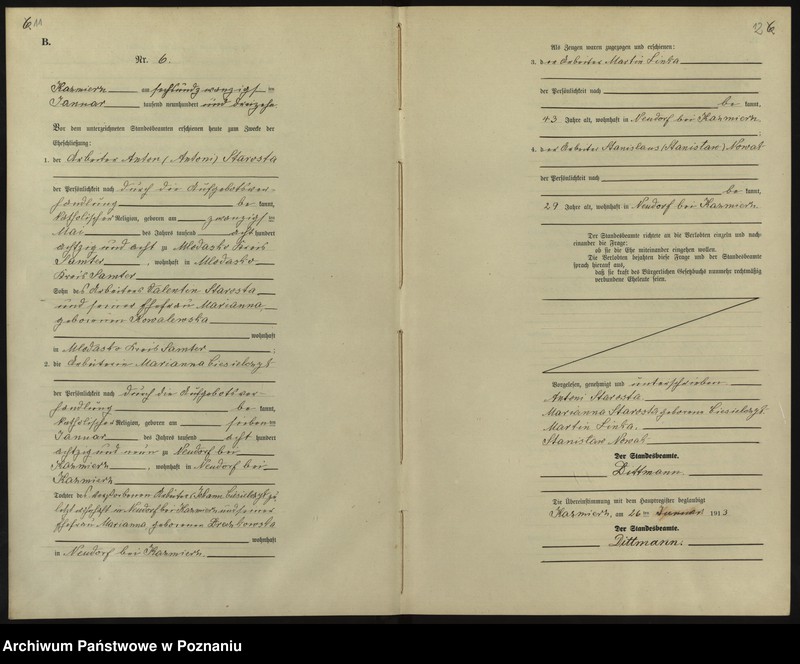 6. 11
B.
Nr. 6.
Kazmierz am sechsundzwanzigsten
Januar tausend neunhundert und dreizehn
Vor dem unterzeichneten Standesbeamten erschienen heute zum Zwecke der
Eheschließung:
1. der Arbeiter Anton (Antoni) Starosta
der Persönlichkeit nach durch die Aufgebotsver-
handlung be kannt,
katholischer Religion, geboren am zwanzigsten
Mai des Jahres tausend acht hundert
achtzig und acht zu Mlodasko Kreis
Samter, wohnhaft in Mlodasko
Kreis Samter
Sohn des Arbeiters Valentin Starosta
und seiner Ehefrau Marianna,
geborenen Kowalewska
wohnhaft
in Mlodasko Kreis Samter;
2. die Arbeiterin Marianna Ciesielczyk
der Persönlichkeit nach durch die Aufgebotsver-
handlung be kannt,
katholischer Religion, geboren am siebenten
Januar des Jahres tausend acht hundert
achtzig und neun zu Neudorf bei
Kazmierz, wohnhaft in Neudorf bei
Kazmierz
Tochter des verstorbenen Arbeiters Ciesielczyk zu
letzt wohnhaft in Neudorf bei Kazmierz und seiner
Ehefrau Marianna geborenen
wohnhaft
in Neudorf bei Kazmierz.
12 6.
Als Zeugen waren zugezogen und erschienen:
3. der Arbeiter Martin Linka
der Persönlichkeit nach
be kannt,
43 Jahre alt, wohnhaft in Neudorf bei Kazmierz
;
4. der Arbeiter Stanislaus (Stanislaw) Nowak
der Persönlichkeit nach
be kannt,
29 Jahre alt, wohnhaft in Neudorf bei Kazmierz.
Der Standesbeamte richtete an die Verlobten einzeln und nach-
einander die Frage:
ob sie die Ehe miteinander eingehen wollen.
Die Verlobten bejahten diese Frage und der Standesbeamte
sprach hierauf aus,
daß sie kraft des Bürgerlichen Gesetzbuchs nunmehr rechtmäßig
verbundene Eheleute seien.
Vorgelesen, genehmigt und unterschrieben
Antoni Starosta
Marianna Starosta geborene Ciesielczyk.
Martin Linka.
Stanislaw Nowak
Der Standesbeamte.
Dittmann.
Die Übereinstimmung mit dem Hauptregister beglaubigt
Kazmierz, am 26ten Januar 1913
Der Standesbeamte.
Dittmann.
Archiwum Państwowe w Poznaniu